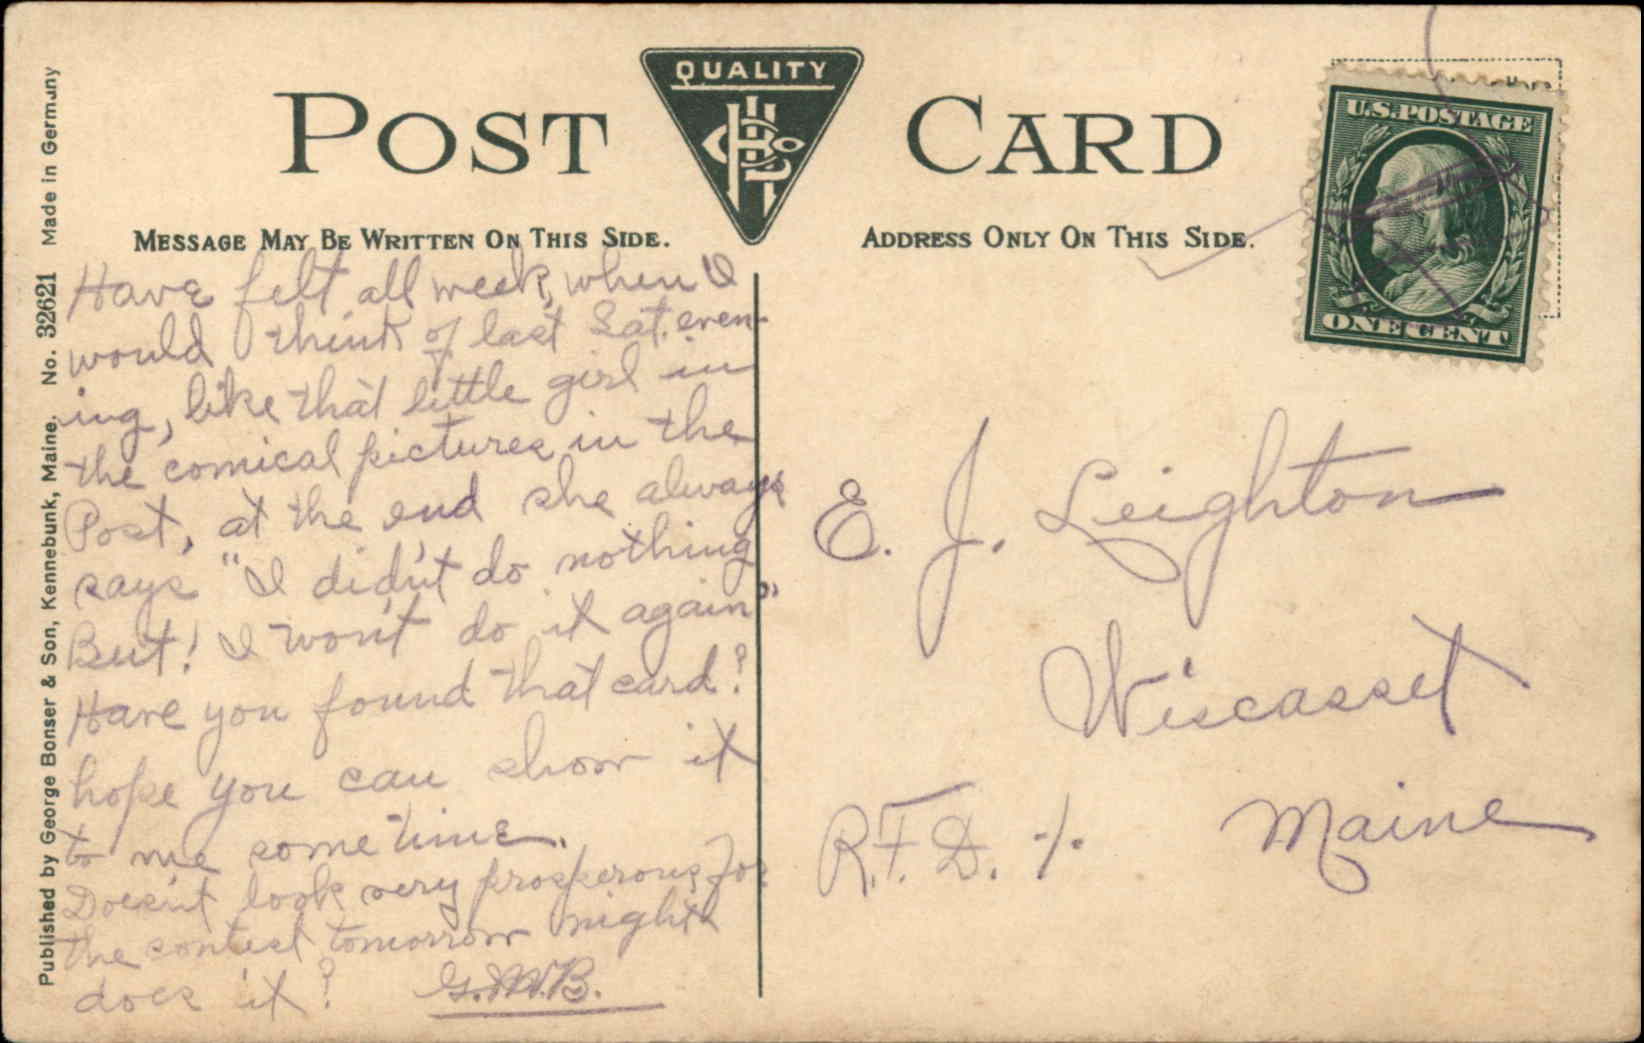 QUALITY
POST CARD
MESSAGE MAY BE WRITTEN ON THIS SIDE.
ADDRESS ONLY ON THIS SIDE.
U.S. POSTAGE
ONE CENT
Published by George Bonser & Son, Kennebunk, Maine. No. 32621 Made in Germany
Have felt all week, when I
would think of last Sat. even-
ing, like that little girl in
the comical pictures in the
Post, at the end she always
says "I didn't do nothing
But! I won't do it again"
Have you found that card?
hope you can show it
to me sometime.
Doesn't look very prosperous for
the contest tomorrow night
does it? G.W.B.
E. J. Leighton
Wiscasset
R.F.D. 1. Maine